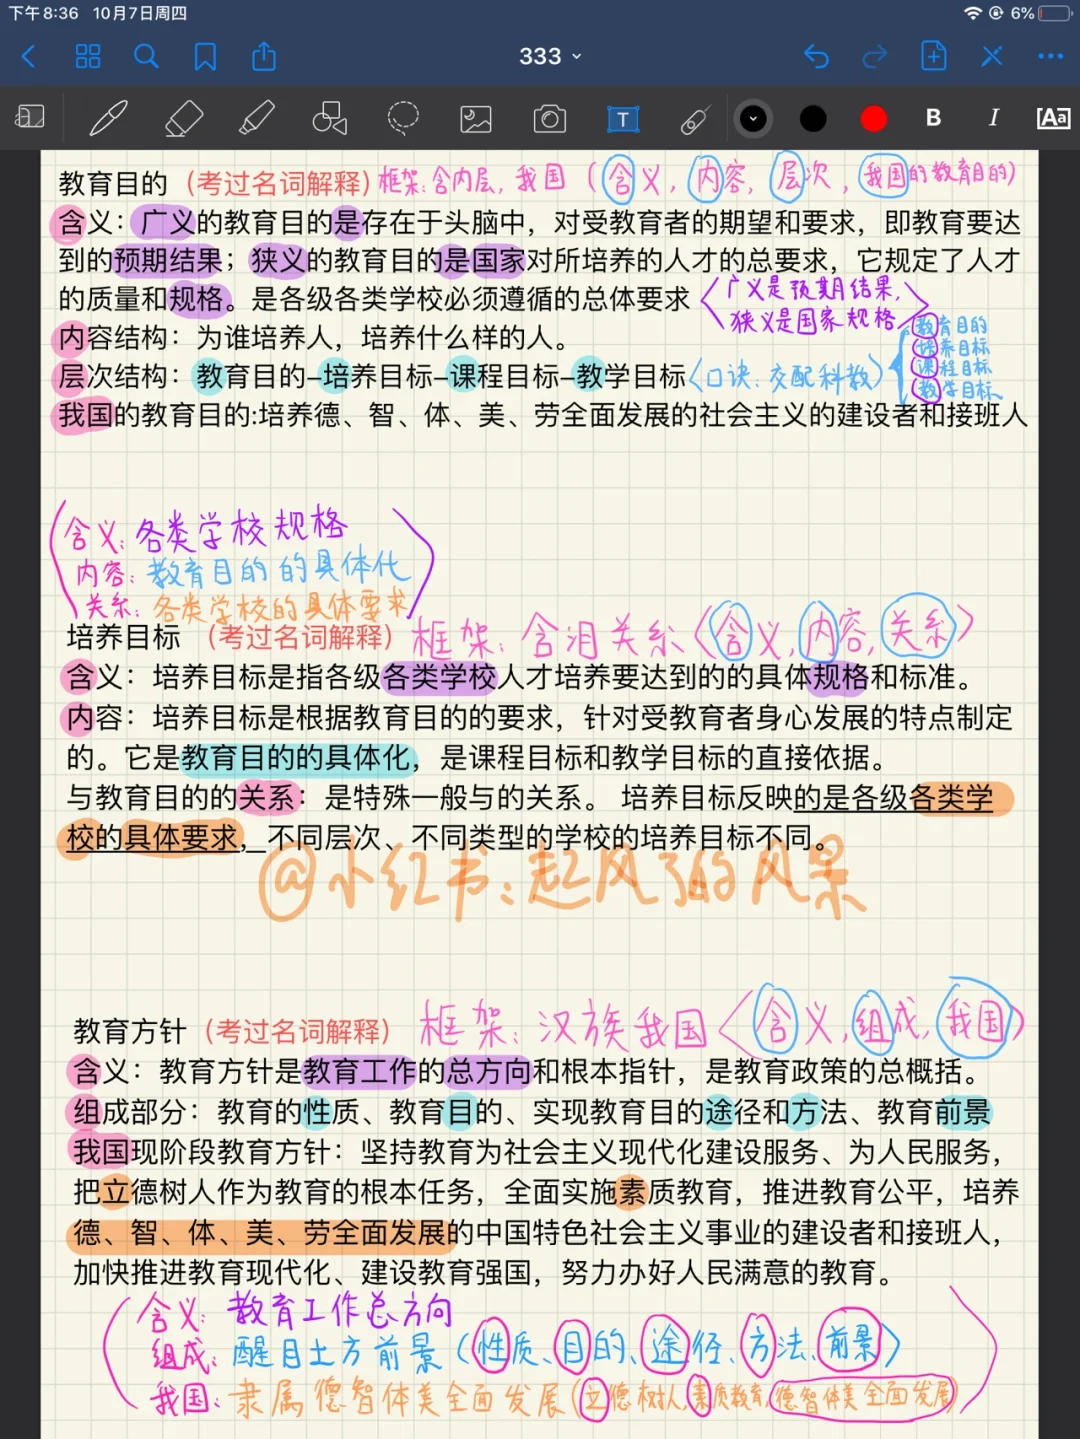 下午8:36 10月7日周四 6%
333
T B I Aa
教育目的 (考过名词解释) 框架:含内层,我国 (含义,内容,层次,我国的教育目的)
含义：广义的教育目的是存在于头脑中，对受教育者的期望和要求，即教育要达
到的预期结果；狭义的教育目的是国家对所培养的人才的总要求，它规定了人才
的质量和规格。是各级各类学校必须遵循的总体要求
广义是预期结果,
狭义是国家规格
内容结构：为谁培养人，培养什么样的人。
层次结构：教育目的–培养目标–课程目标–教学目标 (口诀:交配科教)
教育目的
培养目标
课程目标
教学目标
我国的教育目的:培养德、智、体、美、劳全面发展的社会主义的建设者和接班人
含义:各类学校规格
内容:教育目的的具体化
关系:各类学校的具体要求
培养目标 (考过名词解释) 框架:含泪关系(含义,内容,关系)
含义：培养目标是指各级各类学校人才培养要达到的的具体规格和标准。
内容：培养目标是根据教育目的的要求，针对受教育者身心发展的特点制定
的。它是教育目的的具体化，是课程目标和教学目标的直接依据。
与教育目的的关系：是特殊一般与的关系。 培养目标反映的是各级各类学
校的具体要求，不同层次、不同类型的学校的培养目标不同。
@小红书:起风了的风景
教育方针 (考过名词解释) 框架:汉族我国(含义,组成,我国)
含义：教育方针是教育工作的总方向和根本指针，是教育政策的总概括。
组成部分：教育的性质、教育目的、实现教育目的途径和方法、教育前景
我国现阶段教育方针：坚持教育为社会主义现代化建设服务、为人民服务，
把立德树人作为教育的根本任务，全面实施素质教育，推进教育公平，培养
德、智、体、美、劳全面发展的中国特色社会主义事业的建设者和接班人，
加快推进教育现代化、建设教育强国，努力办好人民满意的教育。
含义:教育工作总方向
组成:醒目土方前景(性质、目的、途径、方法、前景)
我国:隶属德智体美全面发展(立德树人,素质教育,德智体美全面发展)